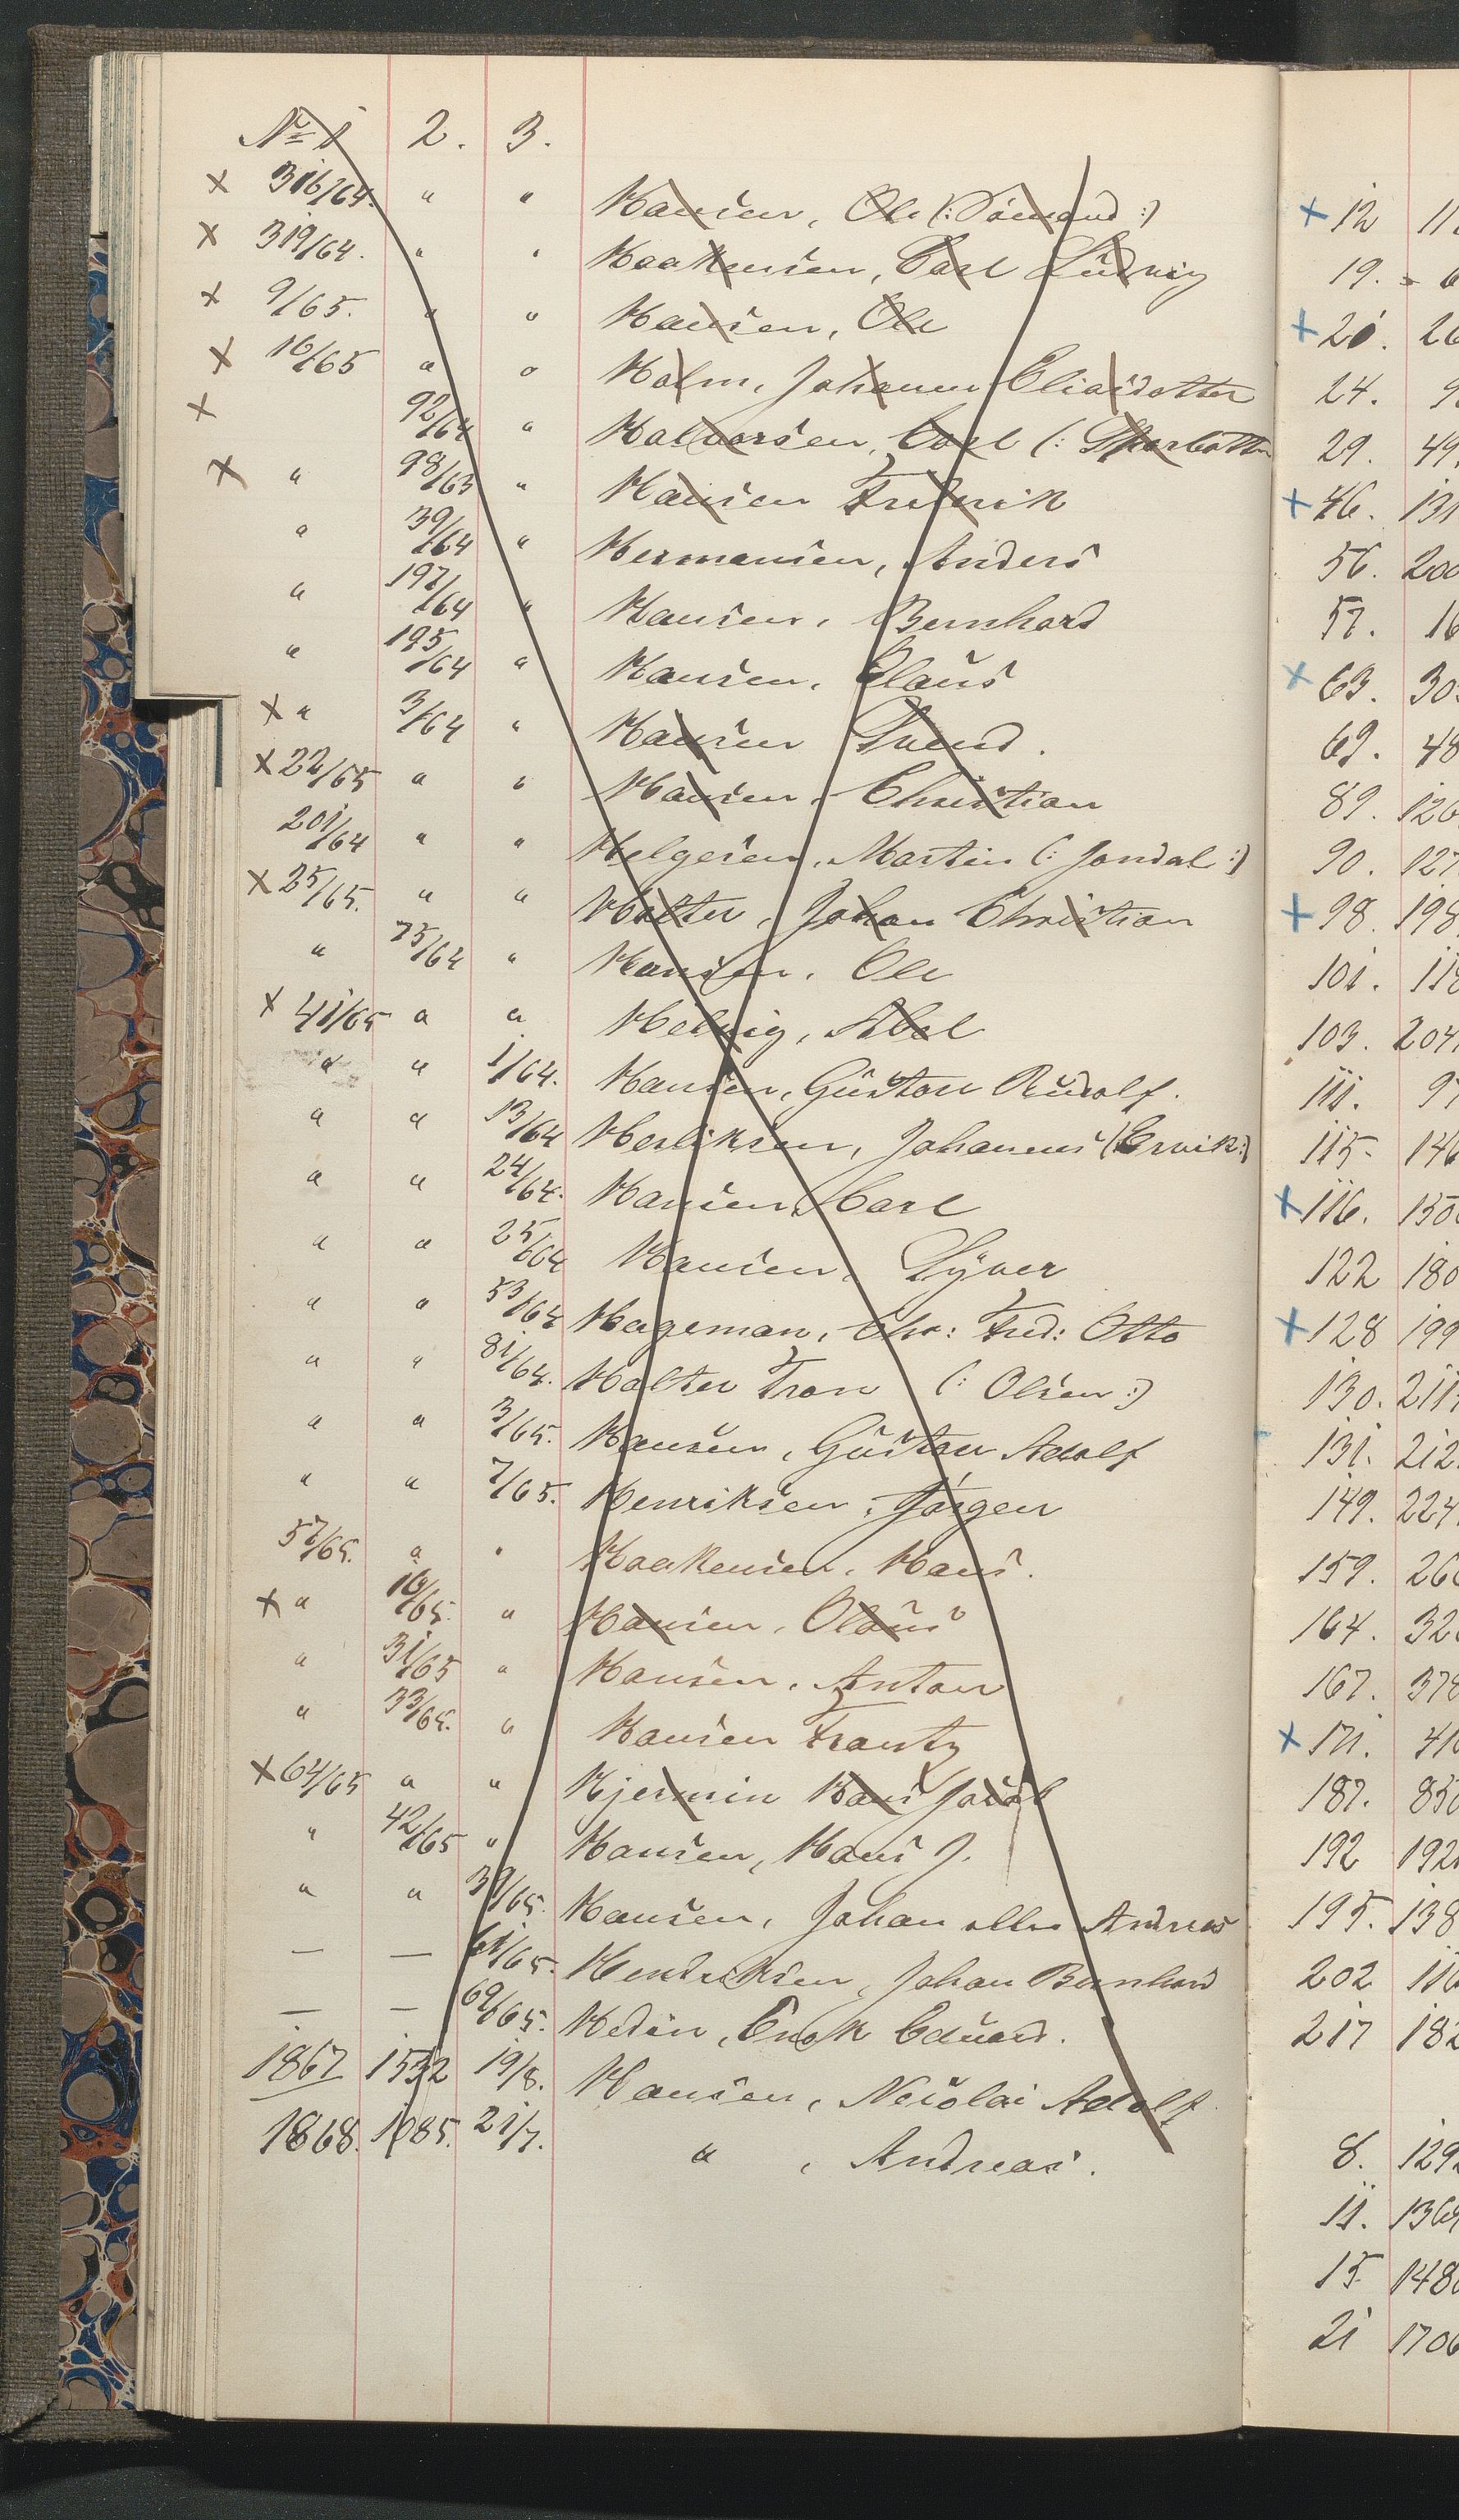 No 1 2. 3.
× 316/64. " " Hansen, Ole (: Sömand :)
× 319/64. " " Haakensen, Carl Ludvig
× 9/65. " " Hansen, Ole
× 16/65 " " Holm, Johanne Eliasdatter
× 92/64 " Halvorsen, Carl (:
× " 98/63 " Hansen Fredrik
" 39/64 " Hermansen, Anders
" 197/64 " Hansen, Bernhard
" 195/64 " Hansen, Claus
× " 3/64 " Hansen Svend.
× 22/65 " " Hansen, Christian
201/64 " " Helgesen, Martin (: Jondal :)
× 25/65. " " Holter, Johan Christian
" 75/64 " Hansen, Ole
× 41/65 " " Helvig, Abel
" " 1/64. Hansen, Gustav Rudolf.
" " 13/64 Herliksen, Johannes (: Ervik :)
" " 24/64. Hansen, Carl
" " 25/64 Hansen, Syver
" " 53/64 Hageman, Chr: Fred: Otto
" " 81/64. Holter Tron (: Olsen :)
" " 3/65. Hansen, Gustav Adolf
" " 7/65. Henriksen, Jörgen
57/65. " " Haakensen, Hans.
× " 16/65. " Hansen, Olaus
" 31/65 " Hansen, Anton
" 33/65. " Hansen Frantz
× 64/65 " " Hjermin Hans Jacob
" 42/65 " Hansen, Hans J.
" " 39/65. Hansen, Johan eller Andreas
— — 61/65. Hendriksen, Johan Bernhard
— — 69/65. Hedin, Enok Eduard.
1867 1532 19/8. Hansen, Nicolai Adolf
1868. 1085. 21/7. " , Andreas.
× 12 11
19. = 6
× 21. 26
24. 9
29. 49.
× 46. 131
56. 200
57. 16
× 63. 30
69. 48
89. 126
90. 127
× 98. 198
101. 118
103. 204
111. 97
115- 146
× 116. 150
122 180
× 128 199
130. 211
131. 212
149. 224
159. 26
164. 32
167. 378
× 171. 41
187. 85
192 192
195. 138
202 116
217 182
8. 129
11. 136
15 148
21 170